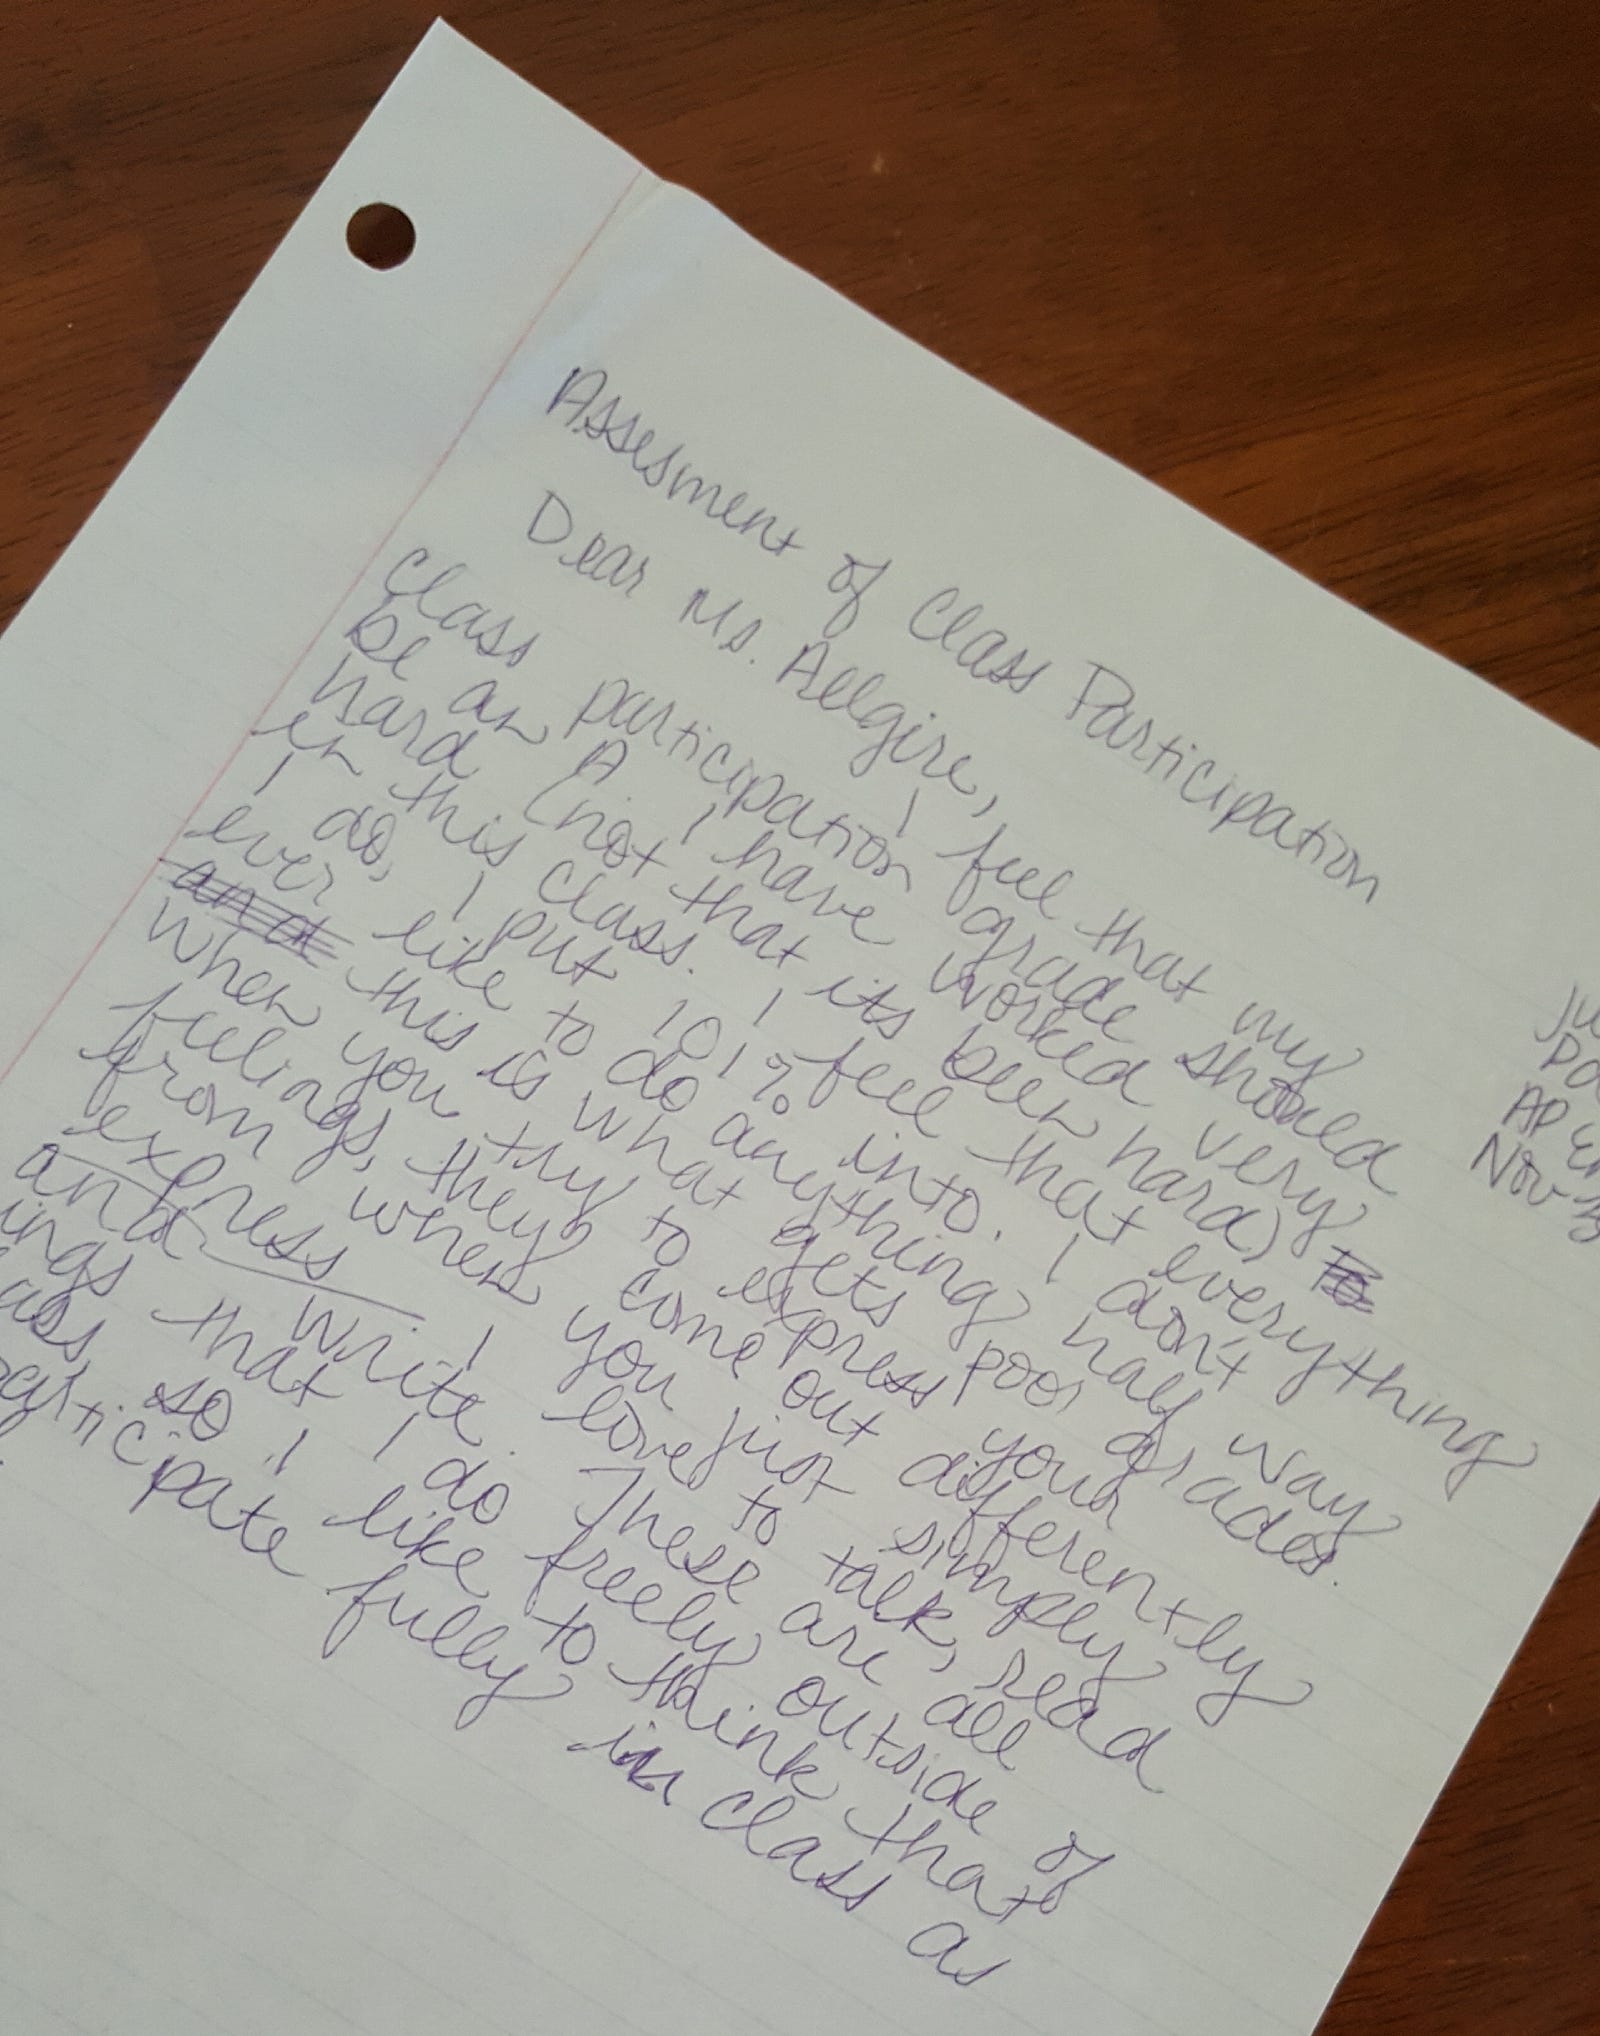 Ju
AP En
Nov
Assesment of Class Participation
Dear Ms. Allgire, I feel that my
Class participation grade should
be an A I have worked very
hard (not that its been hard) to
in this class. I feel that everything
I do, I put 101% into. I don't
ever like to do anything half way
and this is what gets poor grades.
When you try to express your
feelings, they come out differently
from when you just simply
express I love to talk, read
and write. These are all
ings that I do freely outside of
ass, so I like to think that
articipate fully in class as